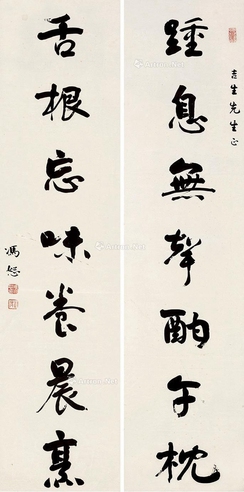 吉生先生正
踵息無聲酣午枕
舌根忘味養晨烹
馮恕